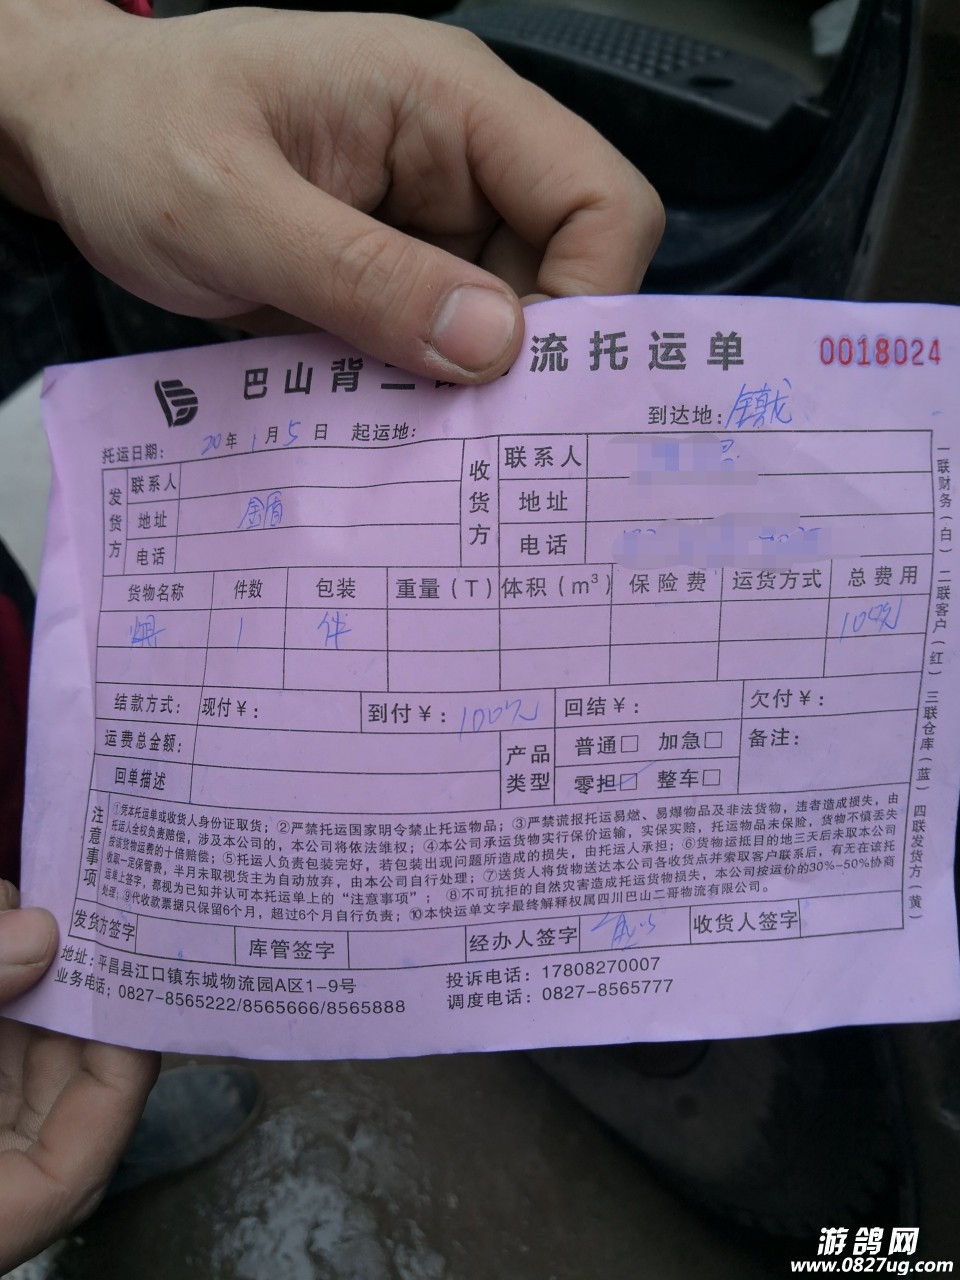 巴山背二 流托运单 0018024
托运日期: 20年1月5日 起运地: 到达地:
发货方 联系人 收货方 联系人
地址 金盾 地址
电话 电话
货物名称 件数 包装 重量(T) 体积(m³) 保险费 运货方式 总费用
1 件 100元
结款方式: 现付¥: 到付¥: 100元 回结¥: 欠付¥:
运费总金额: 产品类型 普通□ 加急□ 备注:
回单描述 零担□ 整车□
注意事项
①凭本托运单或收货人身份证取货；②严禁托运国家明令禁止托运物品；③严禁谎报托运易燃、易爆物品及非法货物，违者造成损失，由
托运人全权负责赔偿，涉及本公司的，本公司将依法维权；④本公司承运货物实行保价运输，实保实赔，托运物品未保险，货物不慎丢失
按该货物运费的十倍赔偿；⑤托运人负责包装完好，若包装出现问题所造成的损失，由托运人承担；⑥货物运抵目的地三天后未取本公司
收取一定保管费，半月未取视货主为自动放弃，由本公司自行处理；⑦送货人将货物送达本公司各收货点并索取客户联系后，有无在该托
运单上签字，都视为已知并认可本托运单上的“注意事项”；⑧不可抗拒的自然灾害造成托运货物损失，本公司按运价的30%-50%协商
处理；⑨代收款票据只保留6个月，超过6个月自行负责；⑩本快运单文字最终解释权属四川巴山二哥物流有限公司。
发货方签字 库管签字 经办人签字 收货人签字
地址: 平昌县江口镇东城物流园A区1-9号 投诉电话: 17808270007
业务电话: 0827-8565222/8565666/8565888 调度电话: 0827-8565777
一联财务(白) 二联客户(红) 三联仓库(蓝) 四联发货方(黄)
游鸽网
www.0827ug.com